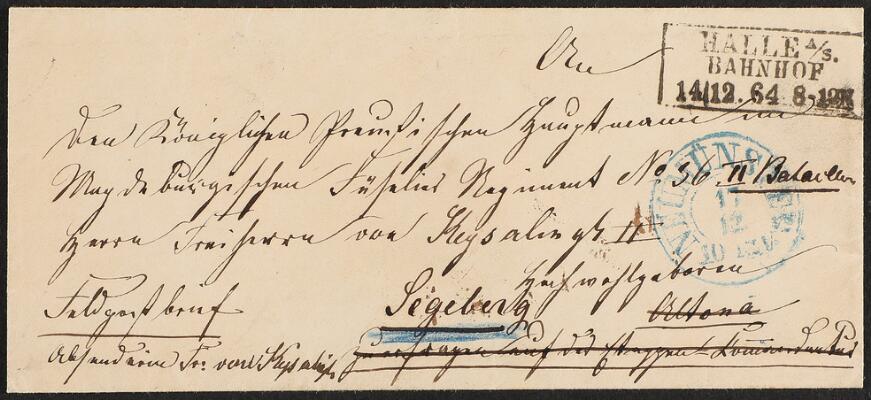 HALLE A/S.
BAHNHOF
14/12. 64 8-12N
An
den Königlichen Preußischen Hauptmann im
Magdeburgischen Füselier Regiment No 36. II Bataillon
Herrn Freiherrn von Keyserlingk II
NEUMÜNSTER
17
12
10
Hochwohlgeboren
Feldpostbrief
Segeberg
Altona
Absenderin Fr: von Keyserlingk
zu erfragen auf der Etappen-Commandantur